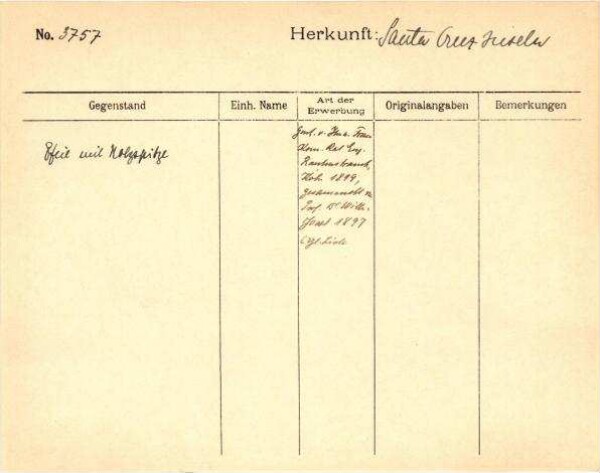 No. 3757
Herkunft: Santa Cruz Inseln
Gegenstand
Einh. Name
Art der
Erwerbung
Originalangaben
Bemerkungen
Pfeil mit Holzspitze
Gesch. v. Frau
Kom. Rat Eug.
Rautenstrauch,
Köln 1899,
gesammelt v.
Prof. Dr. Wilh.
Joest 1897